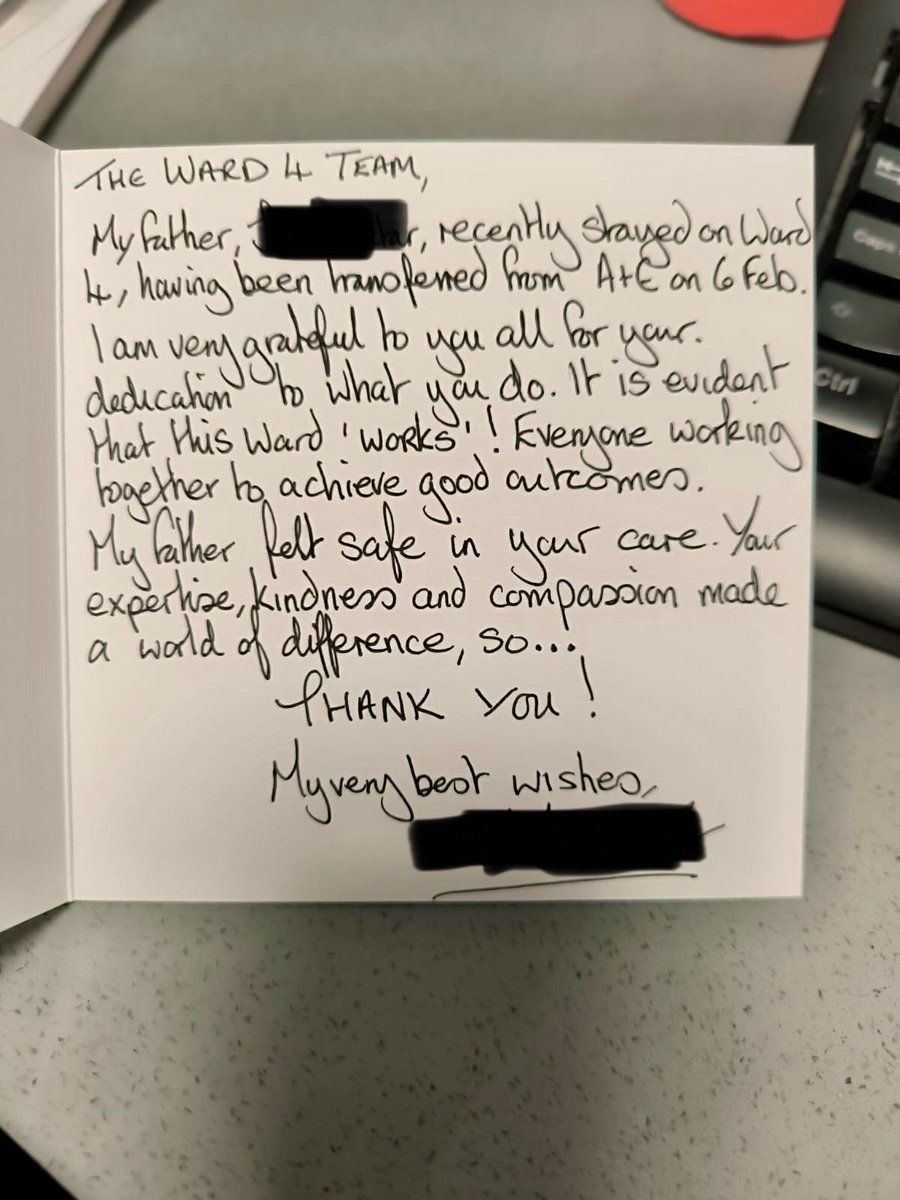 THE WARD 4 TEAM,
My father, , recently stayed on Ward
4, having been transferred from A+E on 6 Feb.
I am very grateful to you all for your.
dedication to what you do. It is evident
that this Ward 'works'! Everyone working
together to achieve good outcomes.
My father felt safe in your care. Your
expertise, kindness and compassion made
a world of difference, so...
THANK YOU!
My very best wishes,
Caps
Ctrl